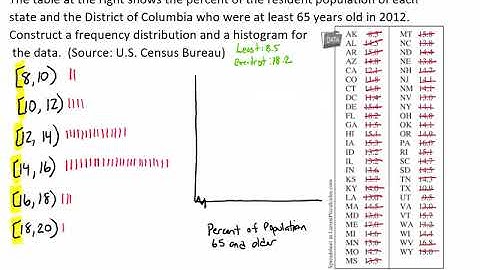 The table at the right shows the percent of the resident population of each
state and the District of Columbia who were at least 65 years old in 2012.
Construct a frequency distribution and a histogram for
the data. (Source: U.S. Census Bureau)
Least: 8.5
Greatest: 18.2
[8,10)
[10,12)
[12,14)
[14,16)
[16,18)
[18,20)
Percent of Population
65 and older
DATA
AK 8.5 MT 15.8
AL 14.5 NC 13.8
AR 15.0 ND
AZ 14.8 NE 13.8
CA 12.1 NH 14.7
CO 11.8 NJ 14.1
CT 14.8 NM 14.1
DC 11.4 NV 13.0
DE NY 14.1
FL 18.2 OH 14.8
GA 11.5 OK 14.1
HI 15.1 OR 14.9
IA 15.3 PA 16.0
ID 13.2 RI 15.1
IL 13.2 SC 14.7
IN 13.6 SD 14.5
KS 13.7 TN 14.3
KY 14.0 TX 10.9
LA UT 9.5
MA 14.5 VA 13.0
MD 13.0 VT 15.7
ME 17.0 WA 13.2
MI 14.6 WI 14.4
MN 13.6 WV 16.8
MO 14.7 WY 13.0
MS 13.5